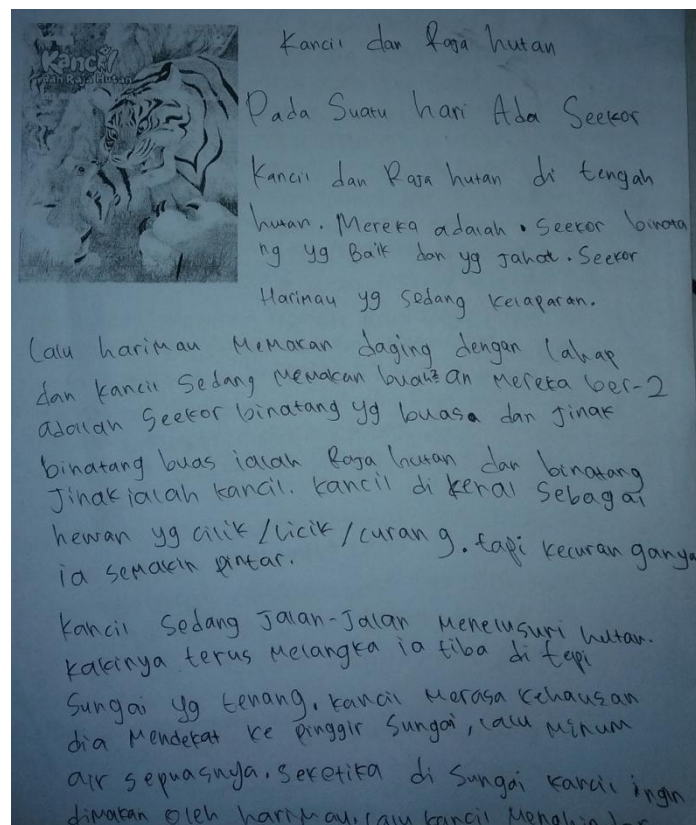 Kancil
dan Raja Hutan
Kancil dan Raja hutan
Pada Suatu hari Ada Seekor
Kancil dan Raja hutan di tengah
hutan. Mereka adalah . Seekor binata
ng yg Baik dan yg Jahat. Seekor
Harimau yg sedang kelaparan.
Lalu harimau Memakan daging dengan lahap
dan kancil Sedang memakan buah²an Mereka ber-2
adalah Seekor binatang yg buasa dan Jinak
binatang buas ialah Raja hutan dan binatang
Jinak ialah kancil. kancil di kenal Sebagai
hewan yg cilik/licik/curang. tapi kecuranganya
ia semakin pintar.
Kancil Sedang Jalan-Jalan Menelusuri hutan.
kakinya terus Melangka ia tiba di tepi
Sungai yg tenang. kancil Merasa kehausan
dia Mendekat ke pinggir Sungai, lalu Minum
air sepuasnya. Seketika di Sungai kancil ingin
dimakan oleh harimau. lalu kancil